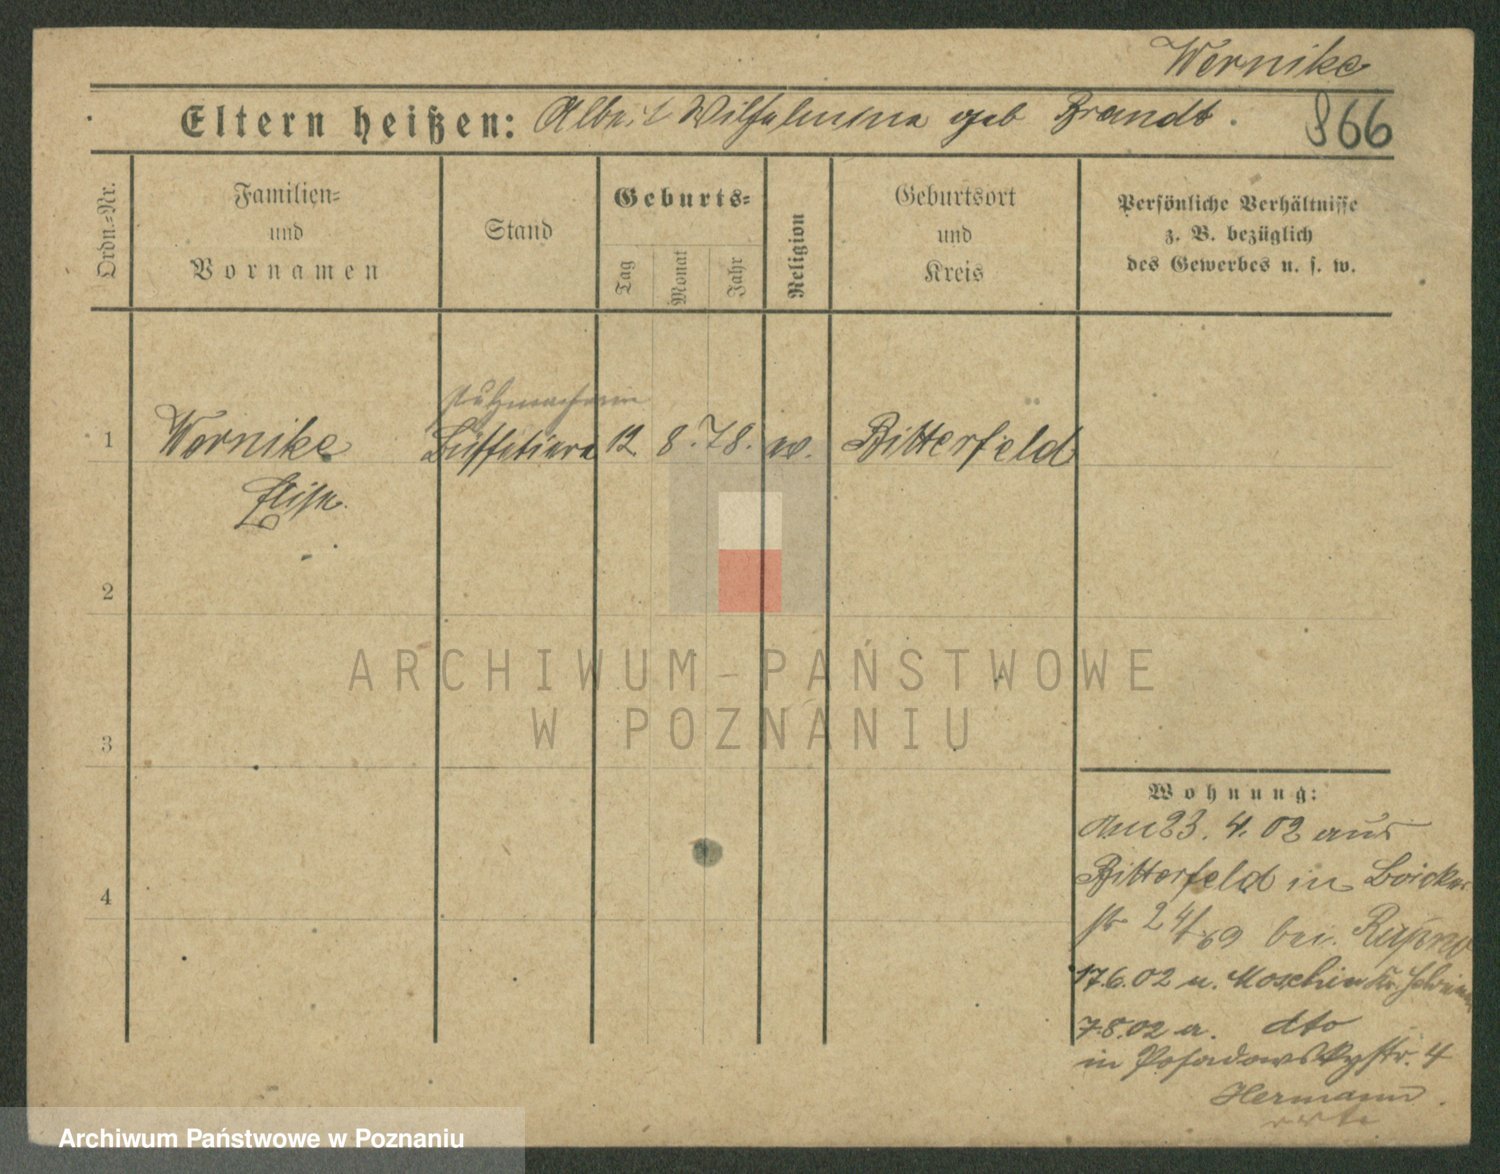 Wernike
Eltern heißen: Albert Wilhelmine geb Brandt.
866
Ordn.=Nr.
Familien=
und
Vornamen
Stand
Geburts=
Tag
Monat
Jahr
Religion
Geburtsort
und
Kreis
Persönliche Verhältnisse
z. B. bezüglich
des Gewerbes u. s. w.
Putzmacherin
1 Wernike Büffetiere 12 8. 78. ev. Bitterfeld
Elise
2
3
4
ARCHIWUM PAŃSTWOWE
W POZNANIU
Wohnung:
Am 23. 4. 02 aus
Bitterfeld in
str 24/ 69 bei
17.6.02 n. Moschin Kr.
7.8.02 a. dto
in Posadowskystr. 4
Hermann
Archiwum Państwowe w Poznaniu